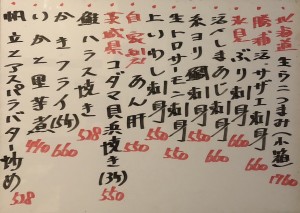 北海道 生ウニつまみ(小箱) 1760
勝浦 活サザエ刺身 660
氷見 ぶり刺身 660
活〆しまあじ刺身 660
糸ヨリ鯛刺身 550
生トロサーモン刺身 550
上いわし刺身 550
自家製 あん肝 550
茨城県 コダマ貝浜焼き(3ケ) 550
鮭ハラス焼き 528
かきフライ(5ケ) 660
いかと里芋煮 440
帆立とアスパラバター炒め 528